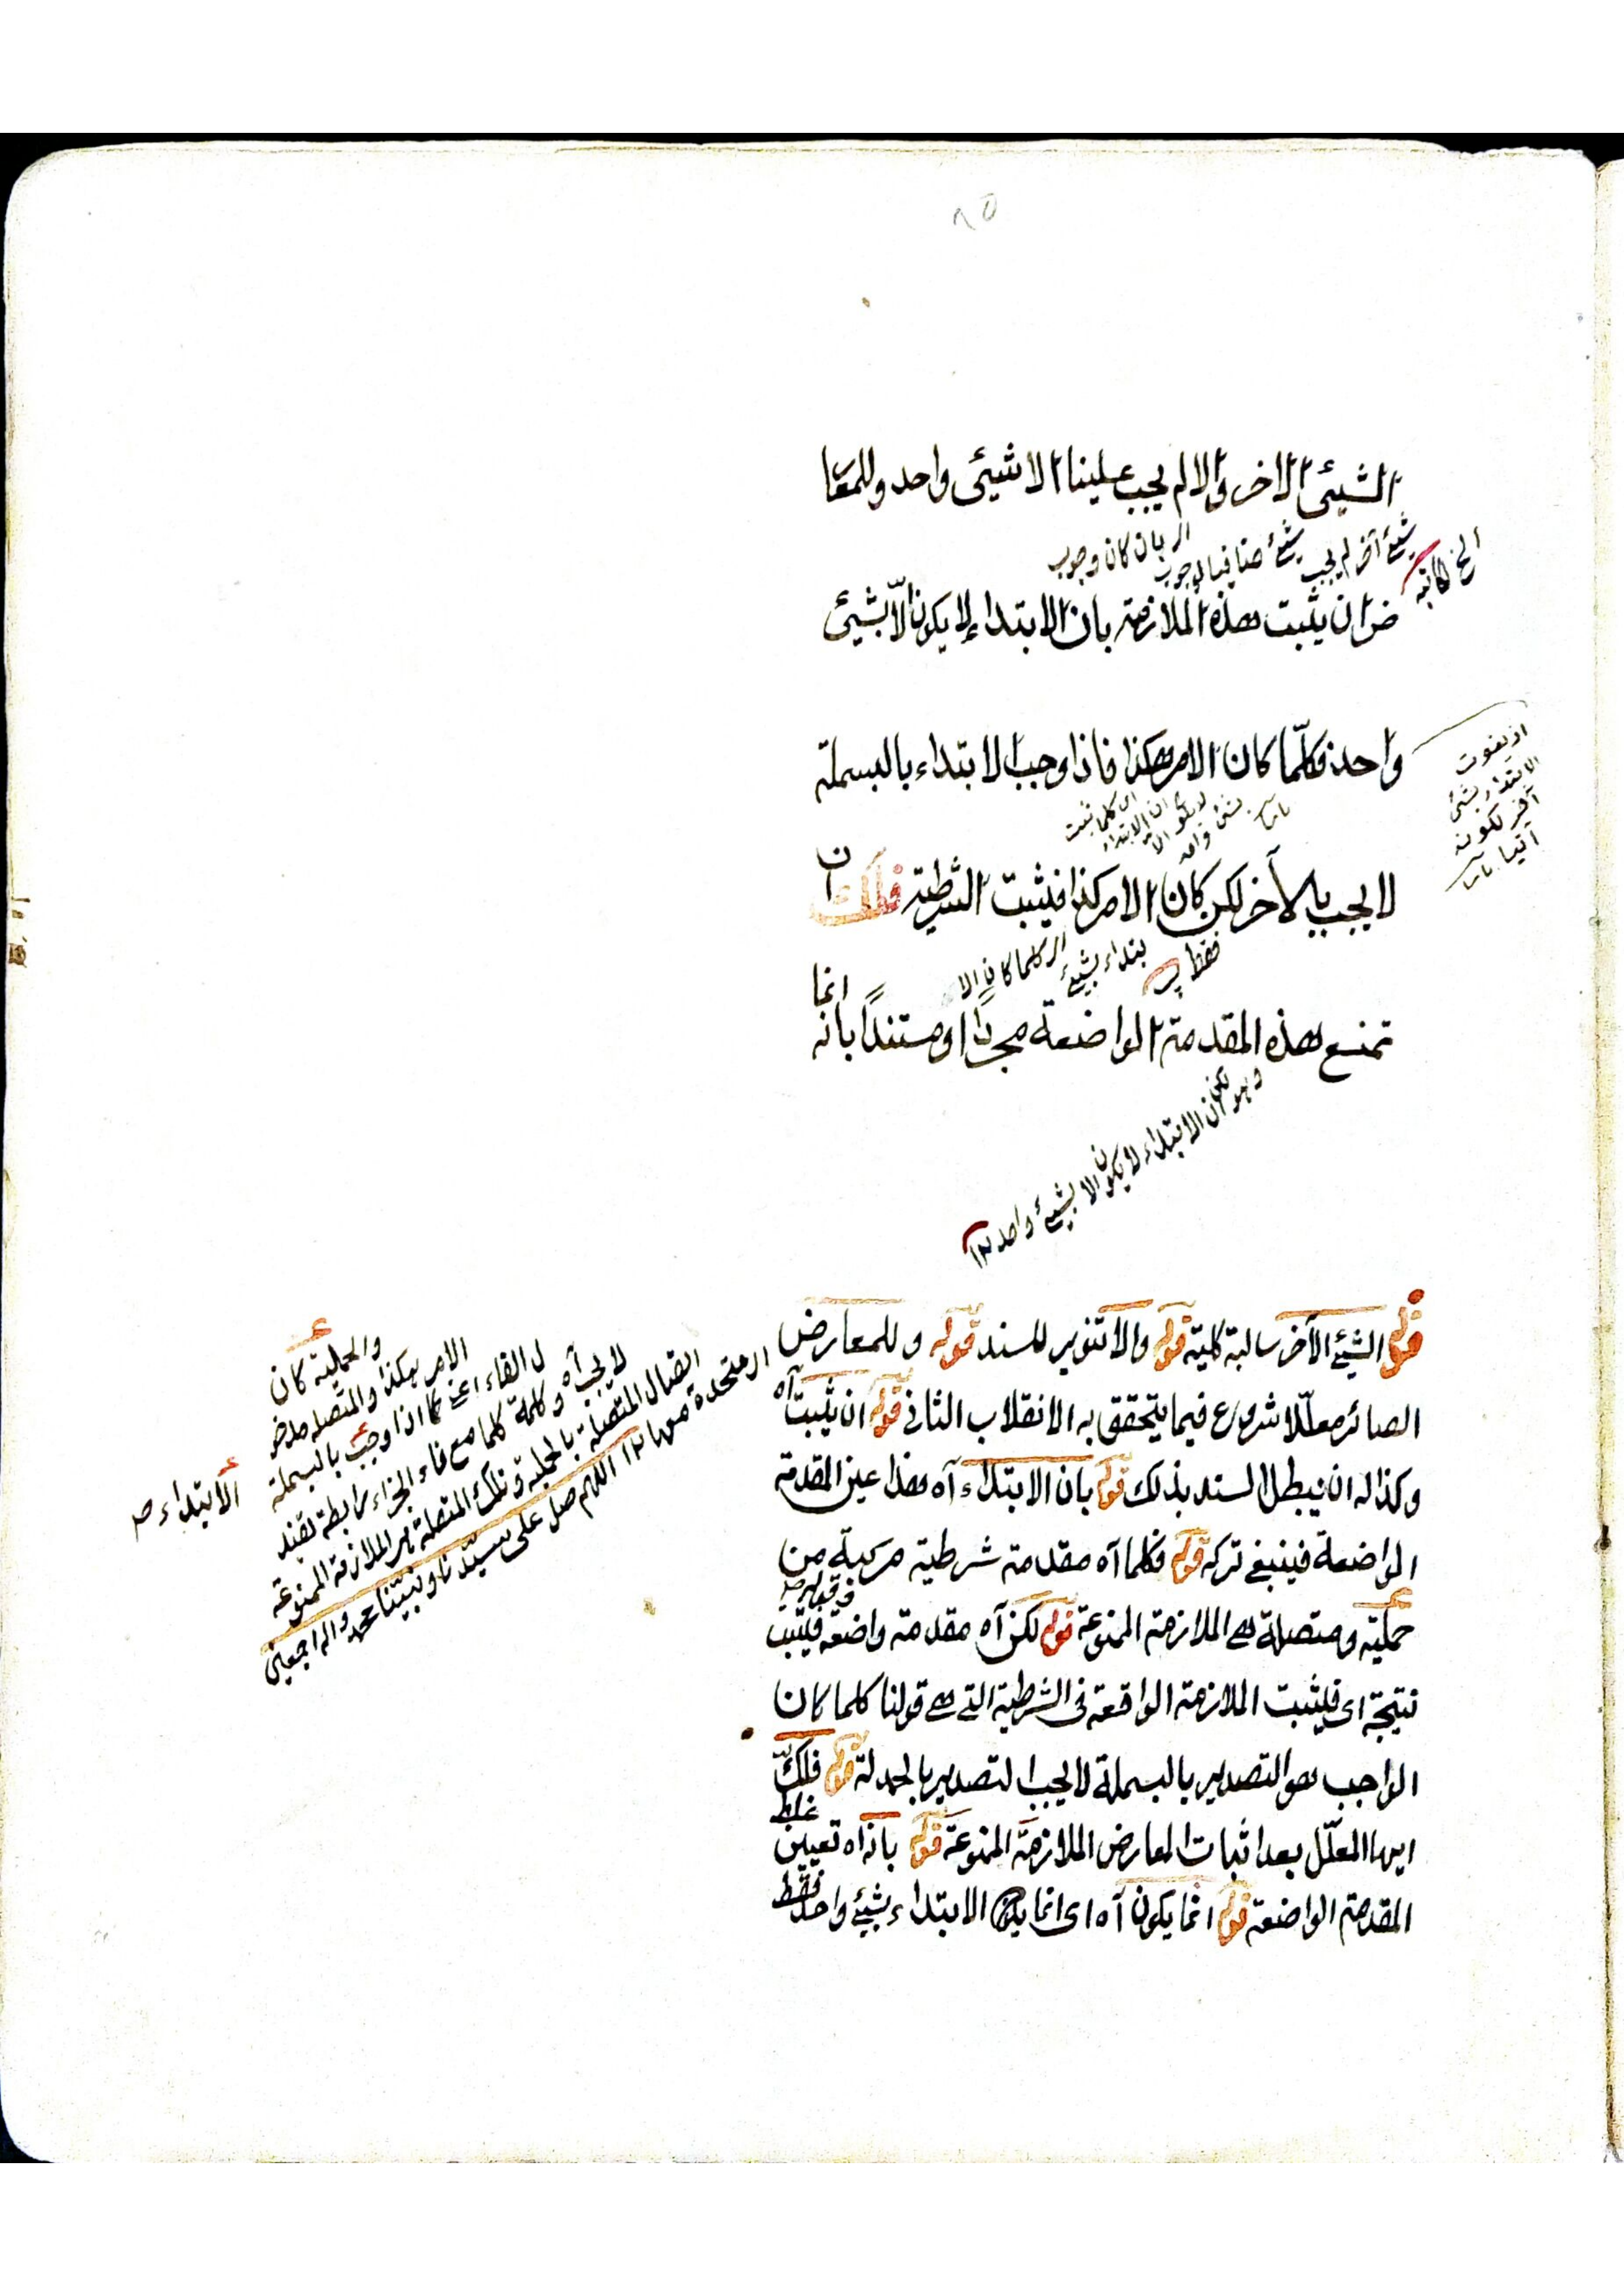 ٨٥
الشيئ الاخر والا لم يجب علينا الا شيئ واحد وللمعا
شيئ آخر لم يجب شيئ منا فيا لوجوب
اى بان كان وجوب
رض ان يثبت هذه الملازمة بان الابتداء لا يكون الّا بشيئ
واحد فكلّما كان الامر هكذا فاذا وجب الابتداء بالبسملة
اذ يفوت
الابتداء بشئ
آخر لكونه
آنيا
لا يجب بالآخر لكن كان الامر كذا فيثبت الشرطية فلك ان
اى كلما كان الا
بتداء بشيئ
فقط
تمنع هذه المقدمة الواضعة مجردًا او مستندًا بانه انما
وهو ان الابتداء لا يكون الا بشيئ واحد ١٢
قوله الشيئ الآخر سالبة كلية قوله والا تنوير للسند قوله وللمعارض
الصائر معلّلا شروع فيما يتحقق به الانقلاب الثانى قوله ان يثبت آه
وكذا له ان يبطل السند بذلك قوله بان الابتداء آه هذا عين المقدمة
الواضعة فينبغى تركه قوله فكلما آه مقدمة شرطية مركبة من
حملية ومتصلة هى الملازمة الممنوعة قوله لكن آه مقدمة واضعة فيثبت
نتيجة اى فليثبت الملازمة الواقعة فى الشرطية التى هى قولنا كلما كان
الواجب هو التصدير بالبسملة لا يجب التصدير بالحمدلة قوله فلك
ايها المعلّل بعد اثبات المعارض الملازمة الممنوعة قوله بانه آه تعيين
غلط
المقدمة الواضعة قوله انما يكون آه اى انما يكون الابتداء بشيئ واحد فقط
والحملية كان
الامر هكذا والمتصلة مدخو
ل الفاء اعنى فاذا وجب بالبسملة
لا يجب آه وكلمة كلما مع فاء الجزاء رابطة تفيد
اتصال المتصلة بالحملية وتلك المتصلة هى الملازمة الممنوعة
ار متحدة معها ١٢ اللهم صل على سيّدنا ونبيّنا محمد واله اجمعين
الابتداء صح